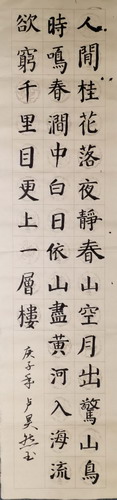 人閒桂花落夜靜春山空月出驚山鳥
時鳴春澗中白日依山盡黃河入海流
欲窮千里目更上一層樓
庚子年卢昊然书